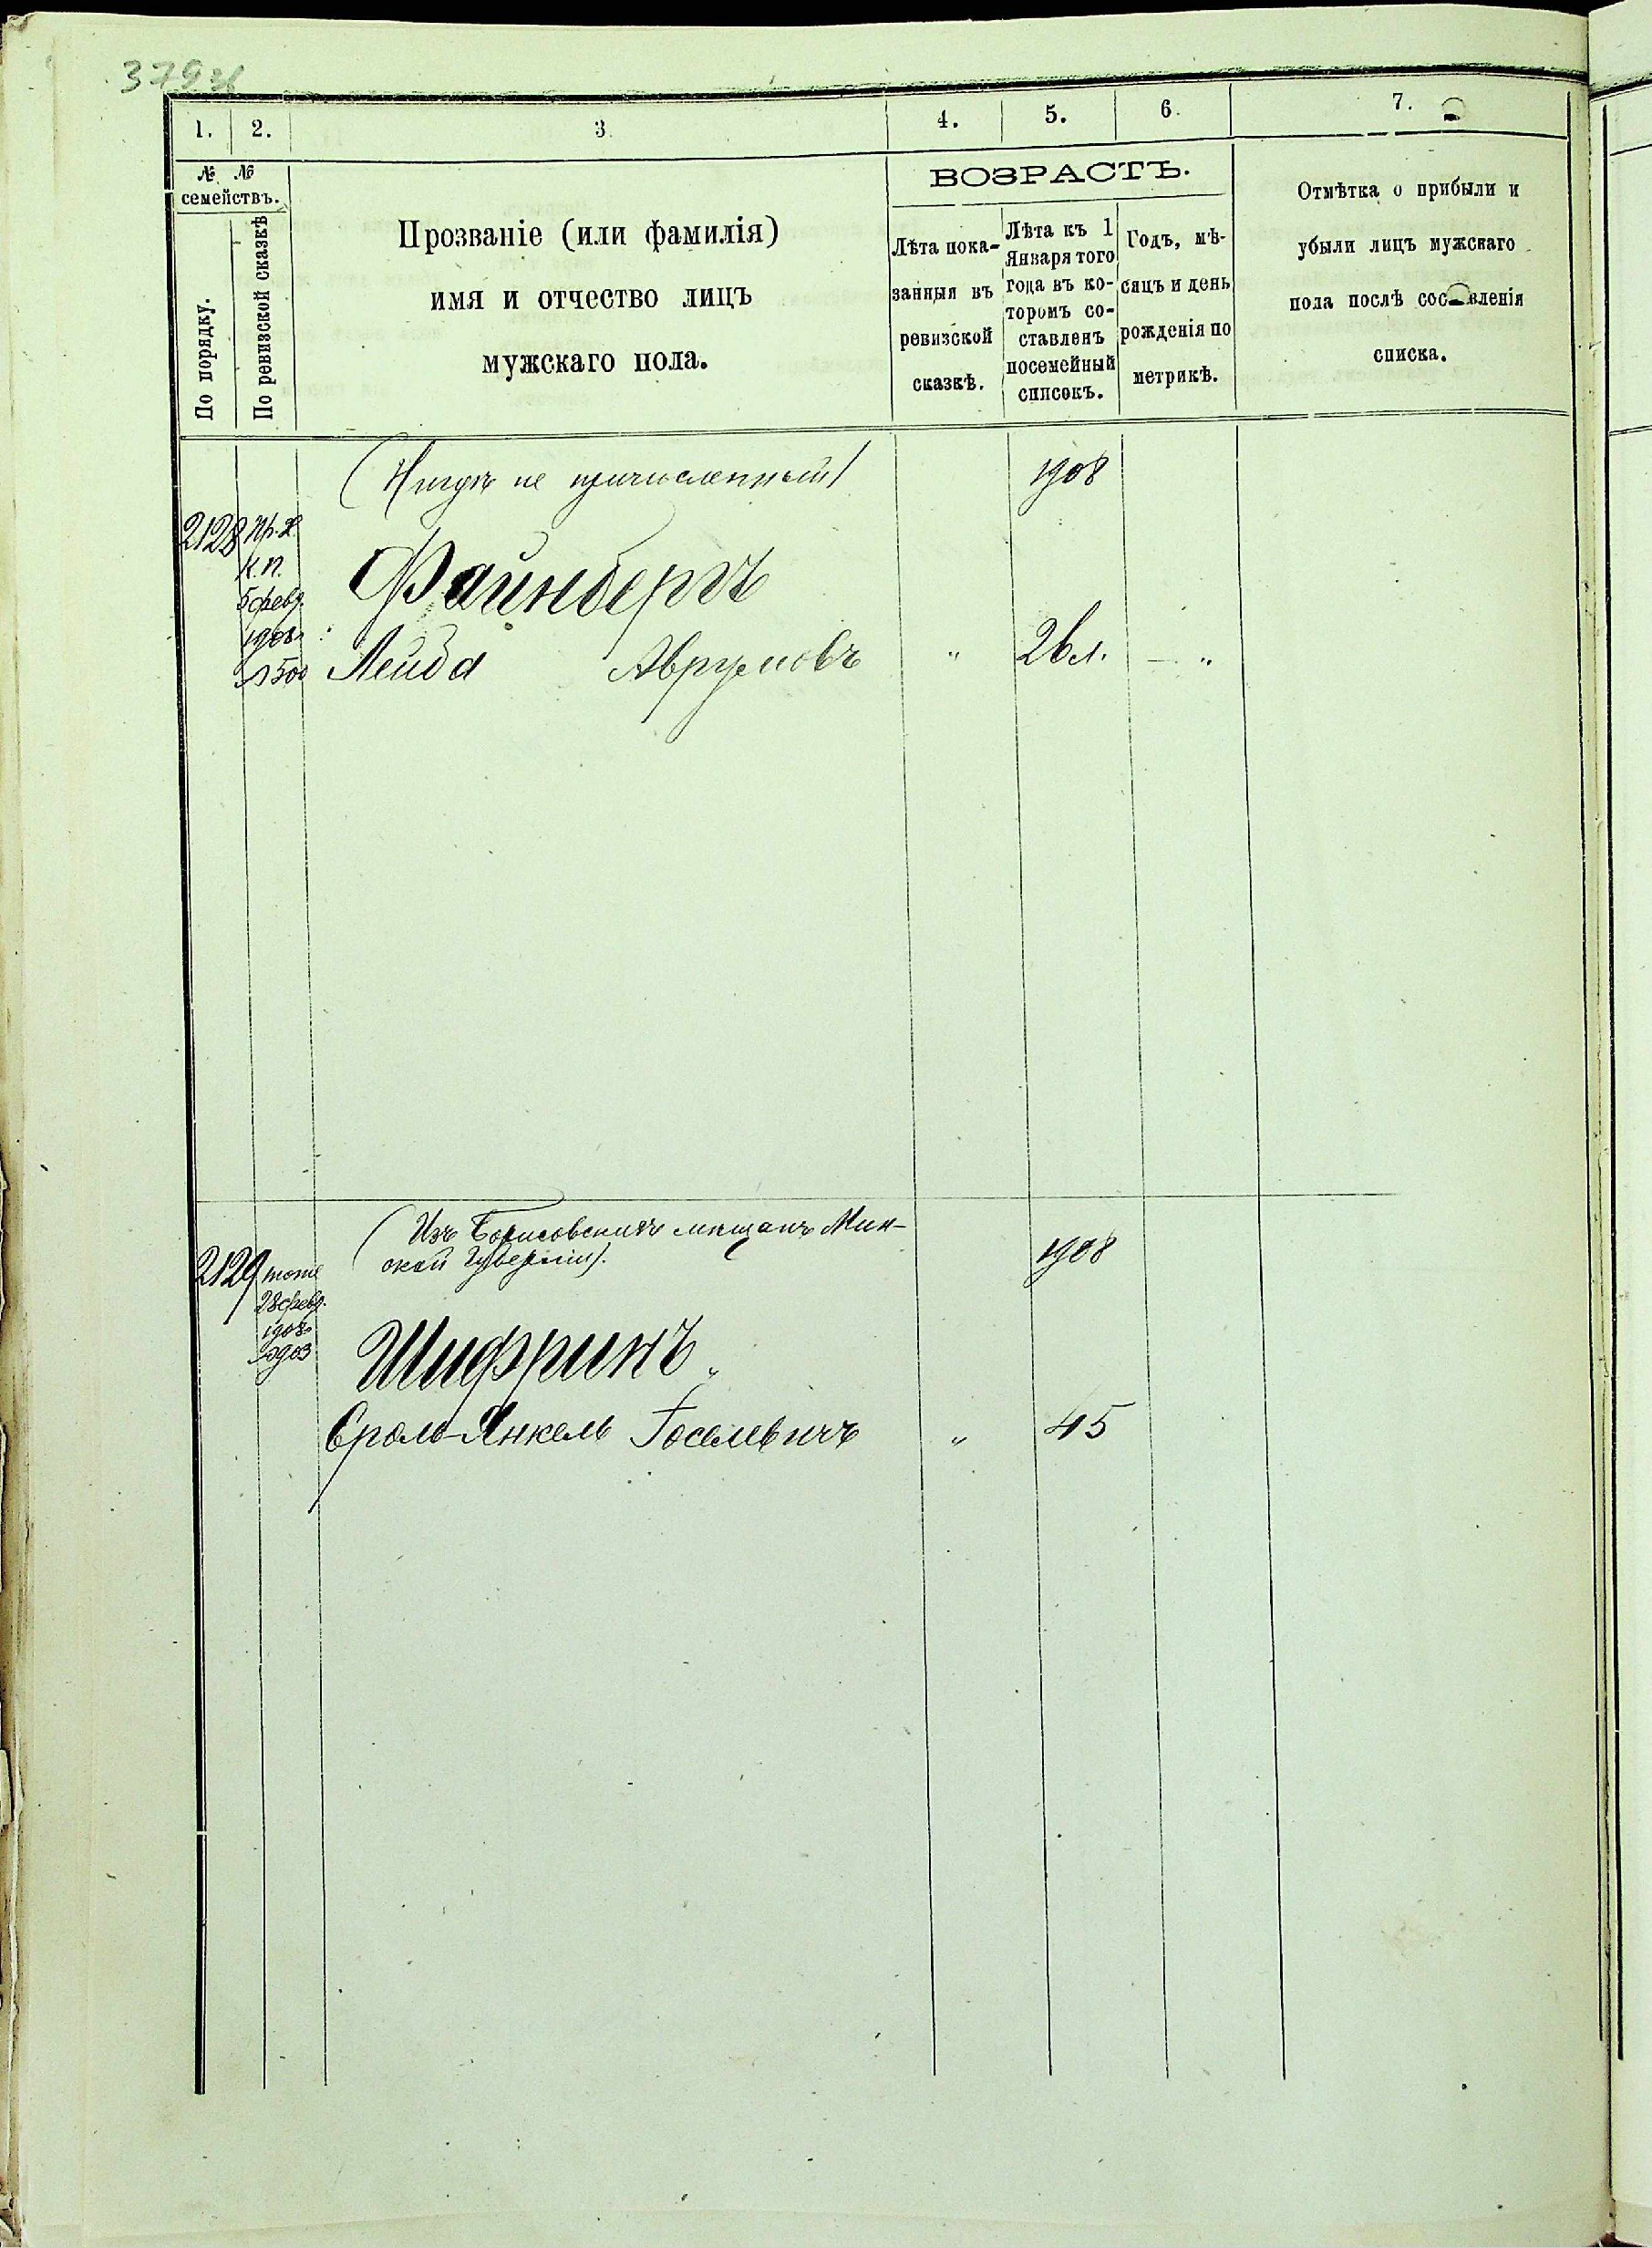 379
1. 2. 3. 4. 5. 6. 7.
№ №
семействъ.
По порядку.
По ревизской сказкѣ
Прозваніе (или фамилія)
имя и отчество лицъ
мужскаго пола.
ВОЗРАСТЪ.
Лѣта пока-
занныя въ
ревизской
сказкѣ.
Лѣта къ 1
Января того
года въ ко-
торомъ со-
ставленъ
посемейный
списокъ.
Годъ, мѣ-
сяцъ и день
рожденія по
метрикѣ.
Отмѣтка о прибыли и
убыли лицъ мужскаго
пола послѣ составленія
списка.
(Нигдѣ не причисленный) 1908
2128 Пр. Х.
К. П.
5 февр.
1908
№ 500
Файнбергъ
Лейба Аврумовъ " 26 л. — "
(Изъ Борисовскихъ мѣщанъ Мин-
ской губерніи). 1908
2129 тоже
28 февр.
1908
№ 903
Шифринъ
Сроль-Янкель Іоселевичъ " 45